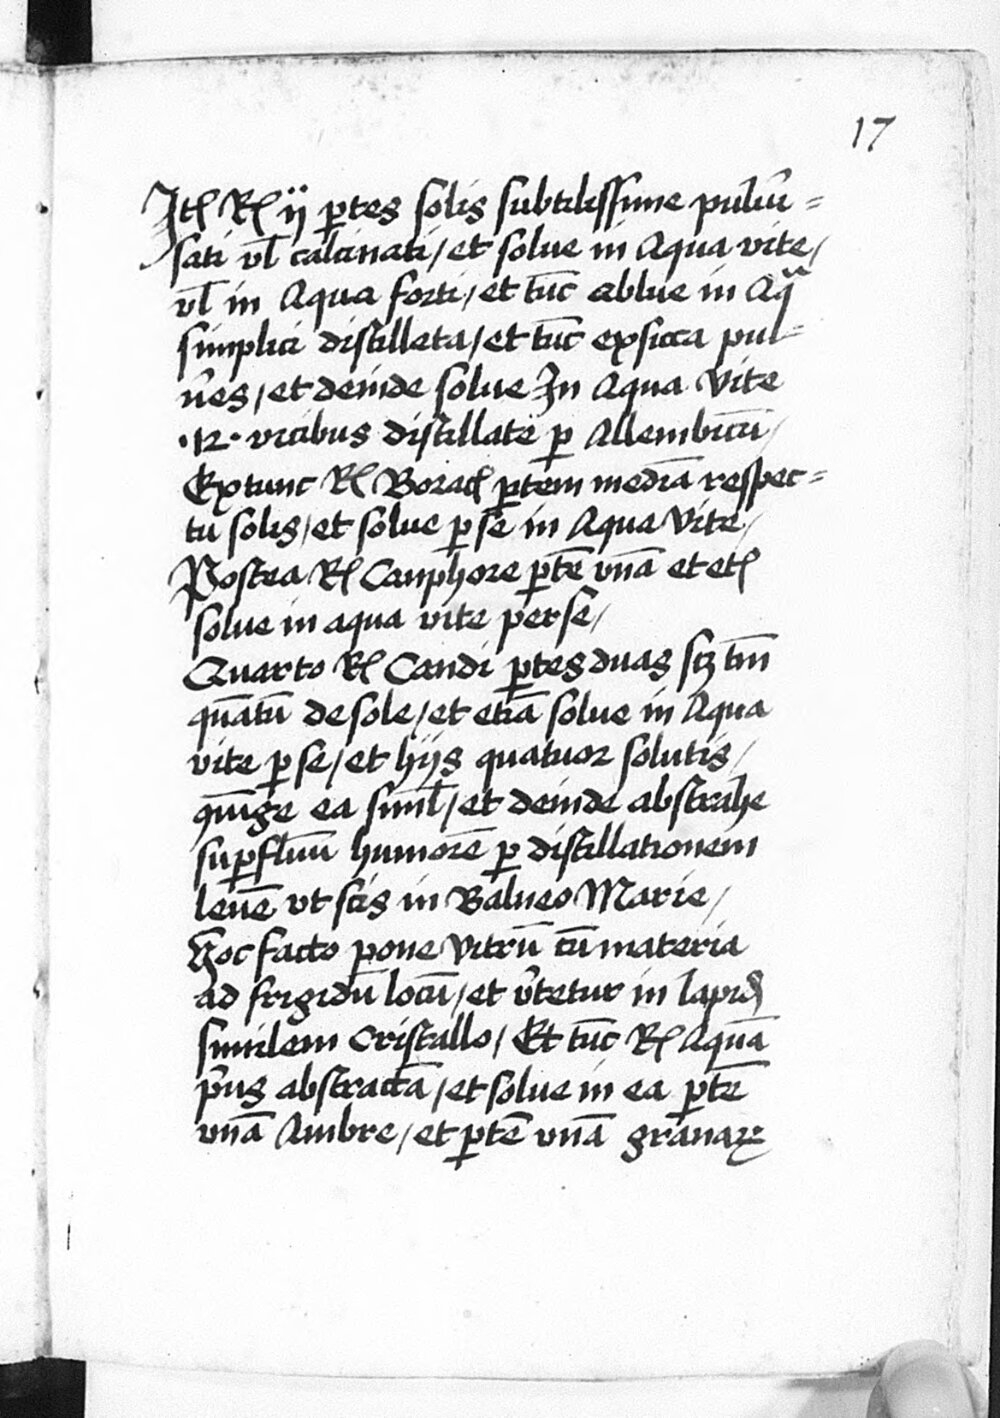 17
Itẽ Rͨ ij ptes solis subtilissime puluĩ=
sati vl calcinati / et solue in Aqua vite /
vl in Aqua forti / et tũc ablue in Aqᵃ
simplici distillata / et tũc exsicca pul=
ũes / et deinde solue In Aqua vite
·12· vicibus distillate p Allembicũ /
Extunc R Borac ptem mediã respec=
tu solis / et solue p se in Aqua vite /
Postea R Canphore ptẽ vnã et et
solue in aqua vite per se /
Quarto R Candi ptes duas scz tm̃
quãtũ de sole / et etiã solue in Aqua
vite p se / et hijs quatuor solutis /
9iũge ea siml / et deinde abstrahe
supfluũ humorẽ p distillationem
leuẽ vt scis in Balneo Marie /
Hoc facto pone vitrũ cũ materia
ad frigidũ locũ / et v̾tetur in lapid
similem Cristallo / Et tũc R Aquã
p̾us abstractã / et solue in ea ptẽ
vnã Ambre / et ptẽ vnã granaꝝ